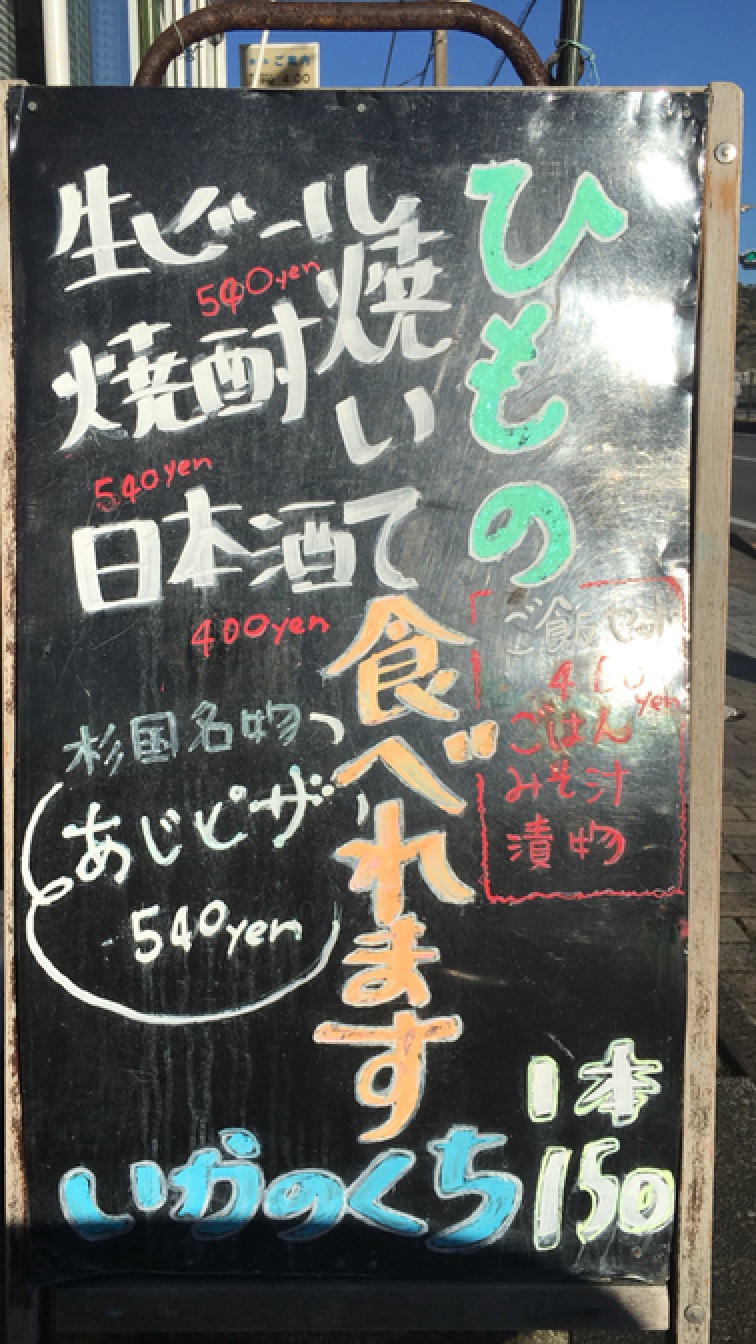 ひもの
焼いて食べれます
生ビール
540yen
焼酎
540yen
日本酒
400yen
杉国名物
あじピザ
540yen
ご飯
yen
ごはん
みそ汁
漬物
いかのくち
1本
150